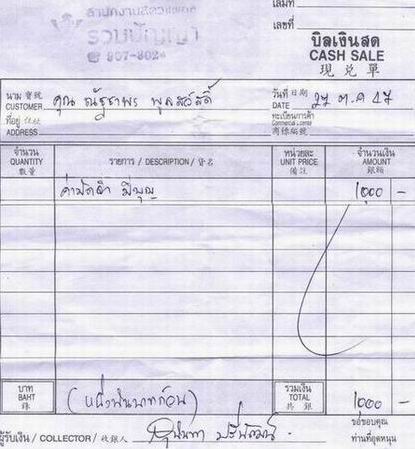 สำนักงานสัตวแพทย์
รวมปัญญา
☎ 907-302
เล่มที่
เลขที่
บิลเงินสด
CASH SALE
現兌單
นาม 寶號
CUSTOMER คุณ ณัฐฐาพร พูลสวัสดิ์
วันที่ 日期
DATE 27 ต.ค 47
ที่อยู่ 住址
ADDRESS
ทะเบียนการค้า
Commercial License
商標編號
จำนวน
QUANTITY
數量
รายการ / DESCRIPTION / 貨名
หน่วยละ
UNIT PRICE
備註
จำนวนเงิน
AMOUNT
銀額
ค่าผ่าตัด มีบุญ 1000 -
บาท
BAHT
銖
(หนึ่งพันบาทถ้วน)
รวมเงิน
TOTAL
共銀
1000 -
ผู้รับเงิน / COLLECTOR / 收銀人
ขอขอบคุณ
ท่านที่อุดหนุน